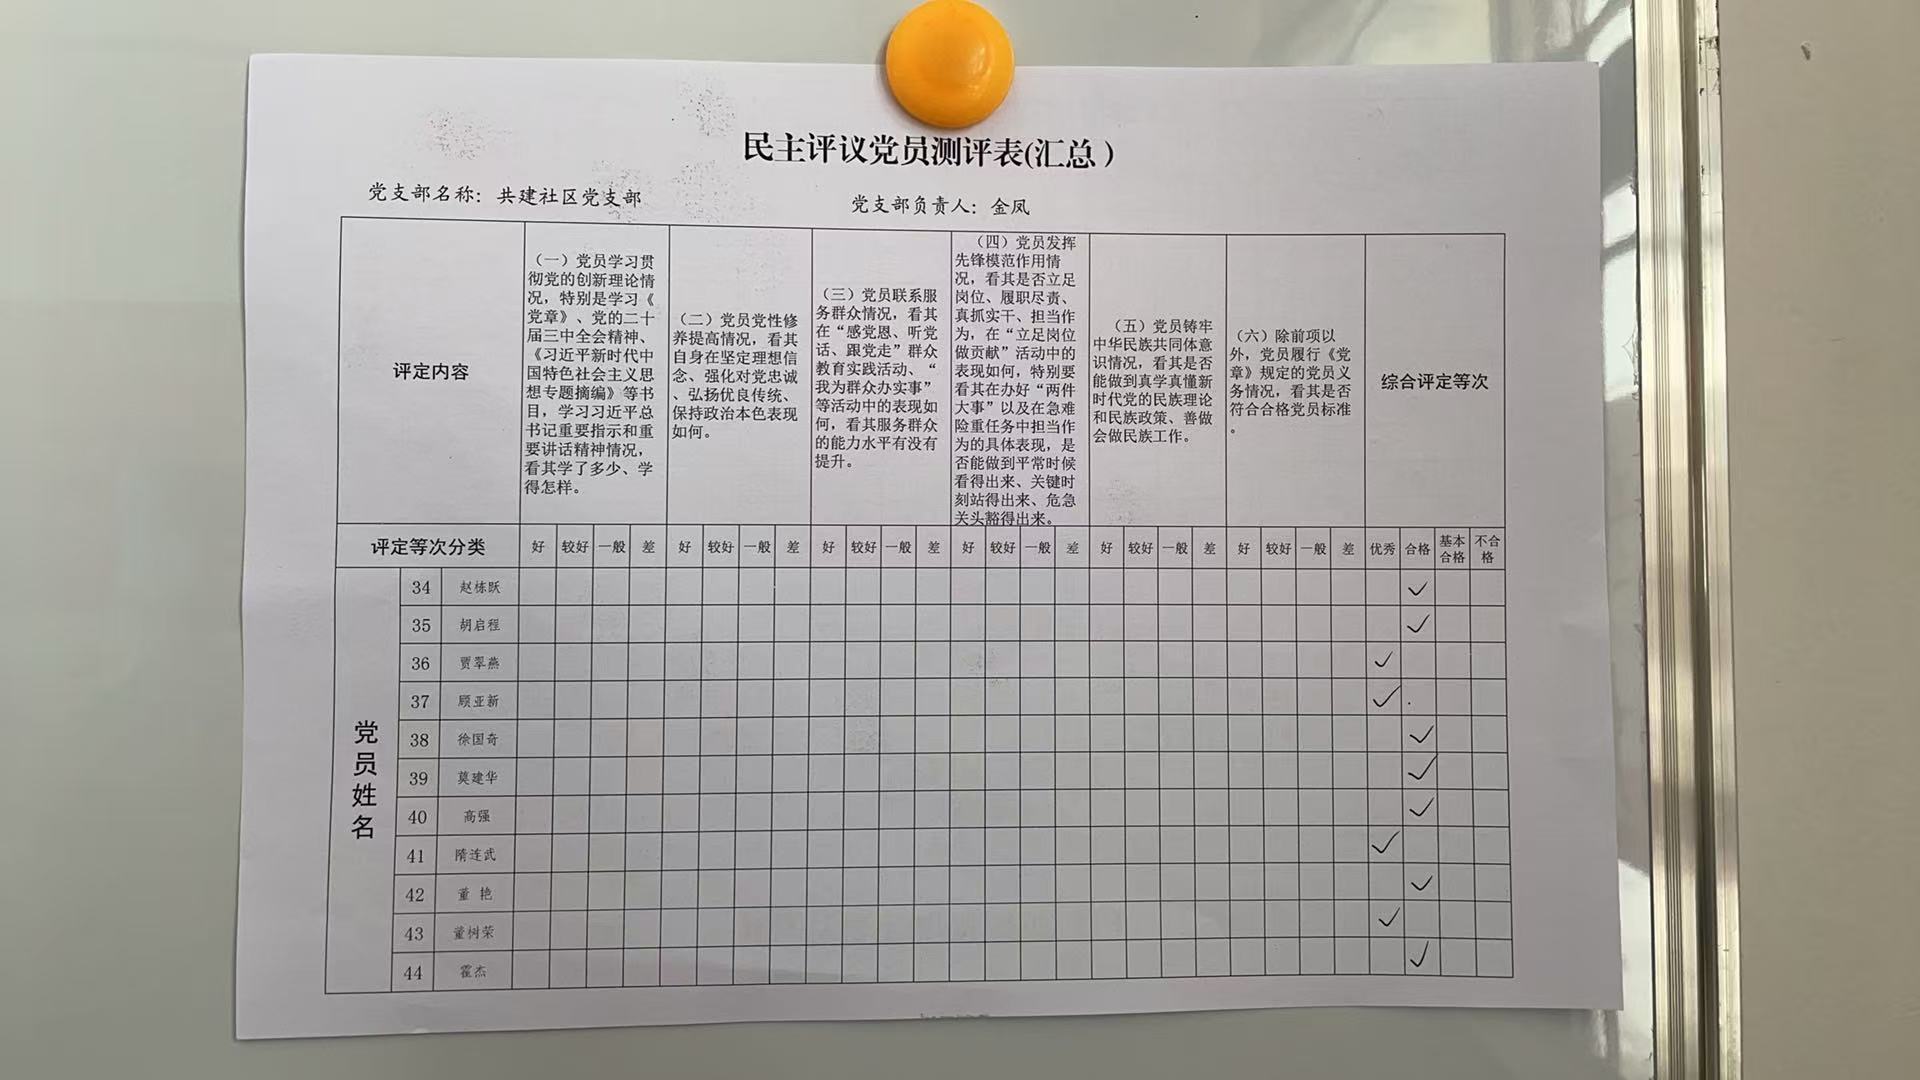 民主评议党员测评表(汇总）
党支部名称：共建社区党支部
党支部负责人：金凤
评定内容
（一）党员学习贯
彻党的创新理论情
况，特别是学习《
党章》、党的二十
届三中全会精神、
《习近平新时代中
国特色社会主义思
想专题摘编》等书
目，学习习近平总
书记重要指示和重
要讲话精神情况，
看其学了多少、学
得怎样。
（二）党员党性修
养提高情况，看其
自身在坚定理想信
念、强化对党忠诚
、弘扬优良传统、
保持政治本色表现
如何。
（三）党员联系服
务群众情况，看其
在“感党恩、听党
话、跟党走”群众
教育实践活动、“
我为群众办实事”
等活动中的表现如
何，看其服务群众
的能力水平有没有
提升。
（四）党员发挥
先锋模范作用情
况，看其是否立足
岗位、履职尽责、
真抓实干、担当作
为，在“立足岗位
做贡献”活动中的
表现如何，特别要
看其在办好“两件
大事”以及在急难
险重任务中担当作
为的具体表现，是
否能做到平常时候
看得出来、关键时
刻站得出来、危急
关头豁得出来。
（五）党员铸牢
中华民族共同体意
识情况，看其是否
能做到真学真懂新
时代党的民族理论
和民族政策、善做
会做民族工作。
（六）除前项以
外，党员履行《党
章》规定的党员义
务情况，看其是否
符合合格党员标准
。
综合评定等次
评定等次分类 好 较好 一般 差 好 较好 一般 差 好 较好 一般 差 好 较好 一般 差 好 较好 一般 差 好 较好 一般 差 优秀 合格 基本合格 不合格
党员姓名
34 赵栋跃 ✓
35 胡启程 ✓
36 贾翠燕 ✓
37 顾亚新 ✓
38 徐国奇 ✓
39 莫建华 ✓
40 高强 ✓
41 隋连武 ✓
42 董 艳 ✓
43 董树荣 ✓
44 霍杰 ✓